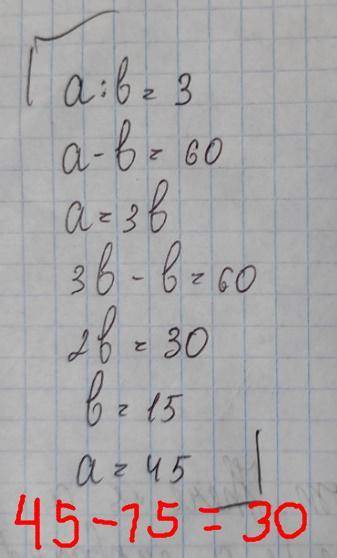 a : b = 3
a - b = 60
a = 3b
3b - b = 60
2b = 30
b = 15
a = 45
45 - 15 = 30